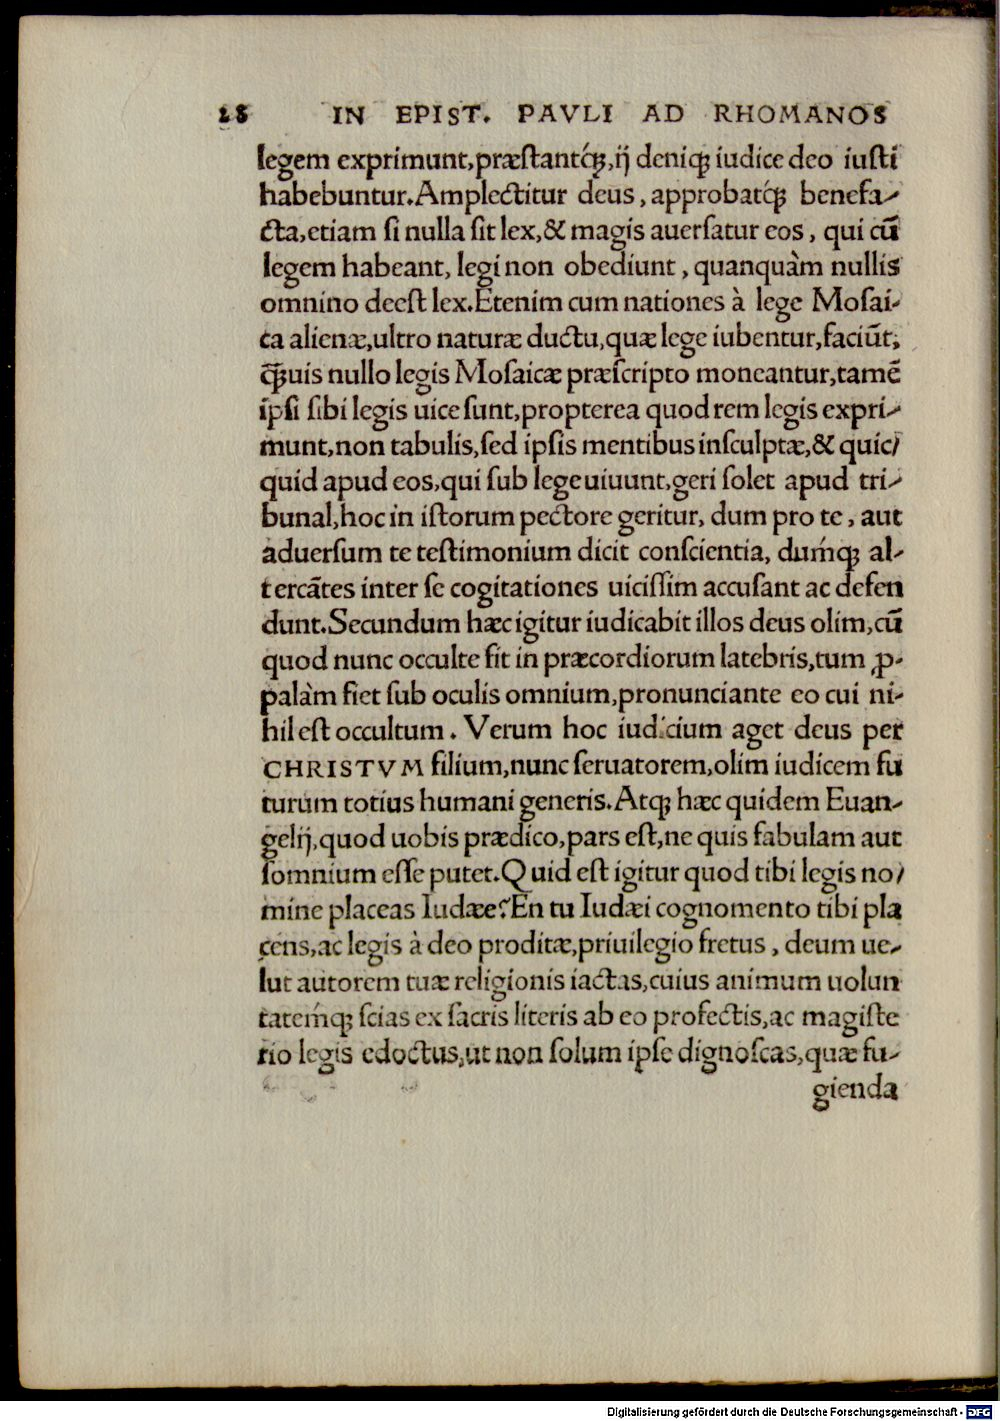 28 IN EPIST. PAVLI AD RHOMANOS
legem exprimunt,præſtantq́;,ij deniq; iudice deo iuſti
habebuntur.Amplectitur deus, approbatq́; benefa-
cta,etiam ſi nulla ſit lex,& magis auerſatur eos, qui cū
legem habeant, legi non obediunt, quanquàm nullis
omnino deeſt lex.Etenim cum nationes à lege Moſai-
ca alienæ,ultro naturæ ductu,quæ lege iubentur,faciūt,
q̄;uis nullo legis Moſaicæ præſcripto moneantur,tamē
ipſi ſibi legis uice ſunt,propterea quod rem legis expri-
munt,non tabulis,ſed ipſis mentibus inſculptæ,& quic/
quid apud eos,qui ſub lege uiuunt,geri ſolet apud tri-
bunal,hoc in iſtorum pectore geritur, dum pro te, aut
aduerſum te teſtimonium dicit conſcientia, dumq́; al-
tercātes inter ſe cogitationes uiciſſim accuſant ac defen
dunt.Secundum hæc igitur iudicabit illos deus olim,cū
quod nunc occulte fit in præcordiorum latebris,tum ꝓ-
palàm fiet ſub oculis omnium,pronunciante eo cui ni-
hil eſt occultum. Verum hoc iudicium aget deus per
CHRISTVM filium,nunc ſeruatorem,olim iudicem fu
turum totius humani generis.Atq; hæc quidem Euan-
gelij,quod uobis prædico,pars eſt,ne quis fabulam aut
ſomnium eſſe putet.Quid eſt igitur quod tibi legis no/
mine placeas Iudæe?En tu Iudæi cognomento tibi pla
cens,ac legis à deo proditæ,priuilegio fretus, deum ue-
lut autorem tuæ religionis iactas,cuius animum uolun
tatemq́; ſcias ex ſacris literis ab eo profectis,ac magiſte
rio legis edoctus,ut non ſolum ipſe dignoſcas,quæ fu-
gienda
Digitalisierung gefördert durch die Deutsche Forschungsgemeinschaft - DFG